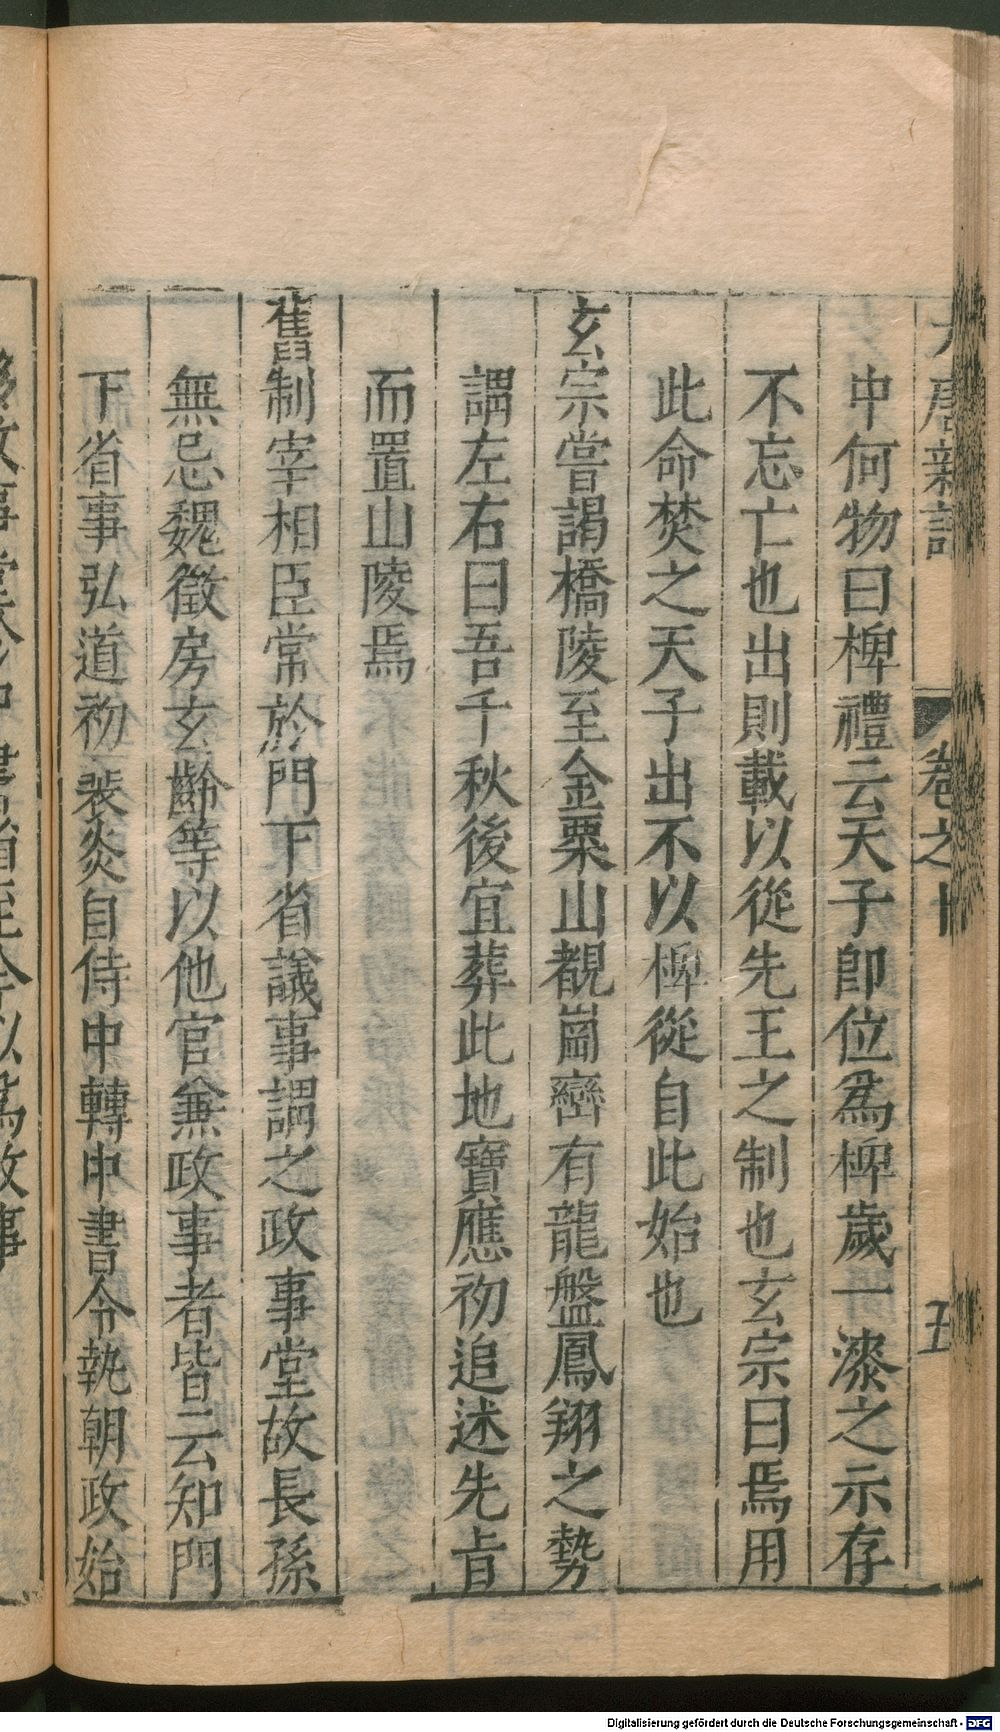 大唐新語 卷之十 五
中何物曰椑禮云天子即位爲椑歲一漆之示存
不忘亡也出則載以從先王之制也玄宗曰焉用
此命焚之天子出不以椑從自此始也
玄宗嘗謁橋陵至金粟山覩崗巒有龍盤鳳翔之勢
謂左右曰吾千秋後宜葬此地寶應初追述先旨
而置山陵焉
舊制宰相臣常於門下省議事謂之政事堂故長孫
無忌魏徵房玄齡等以他官兼政事者皆云知門
下省事弘道初裴炎自侍中轉中書令執朝政始
移政事堂於中書省至今以爲故事
Digitalisierung gefördert durch die Deutsche Forschungsgemeinschaft - DFG